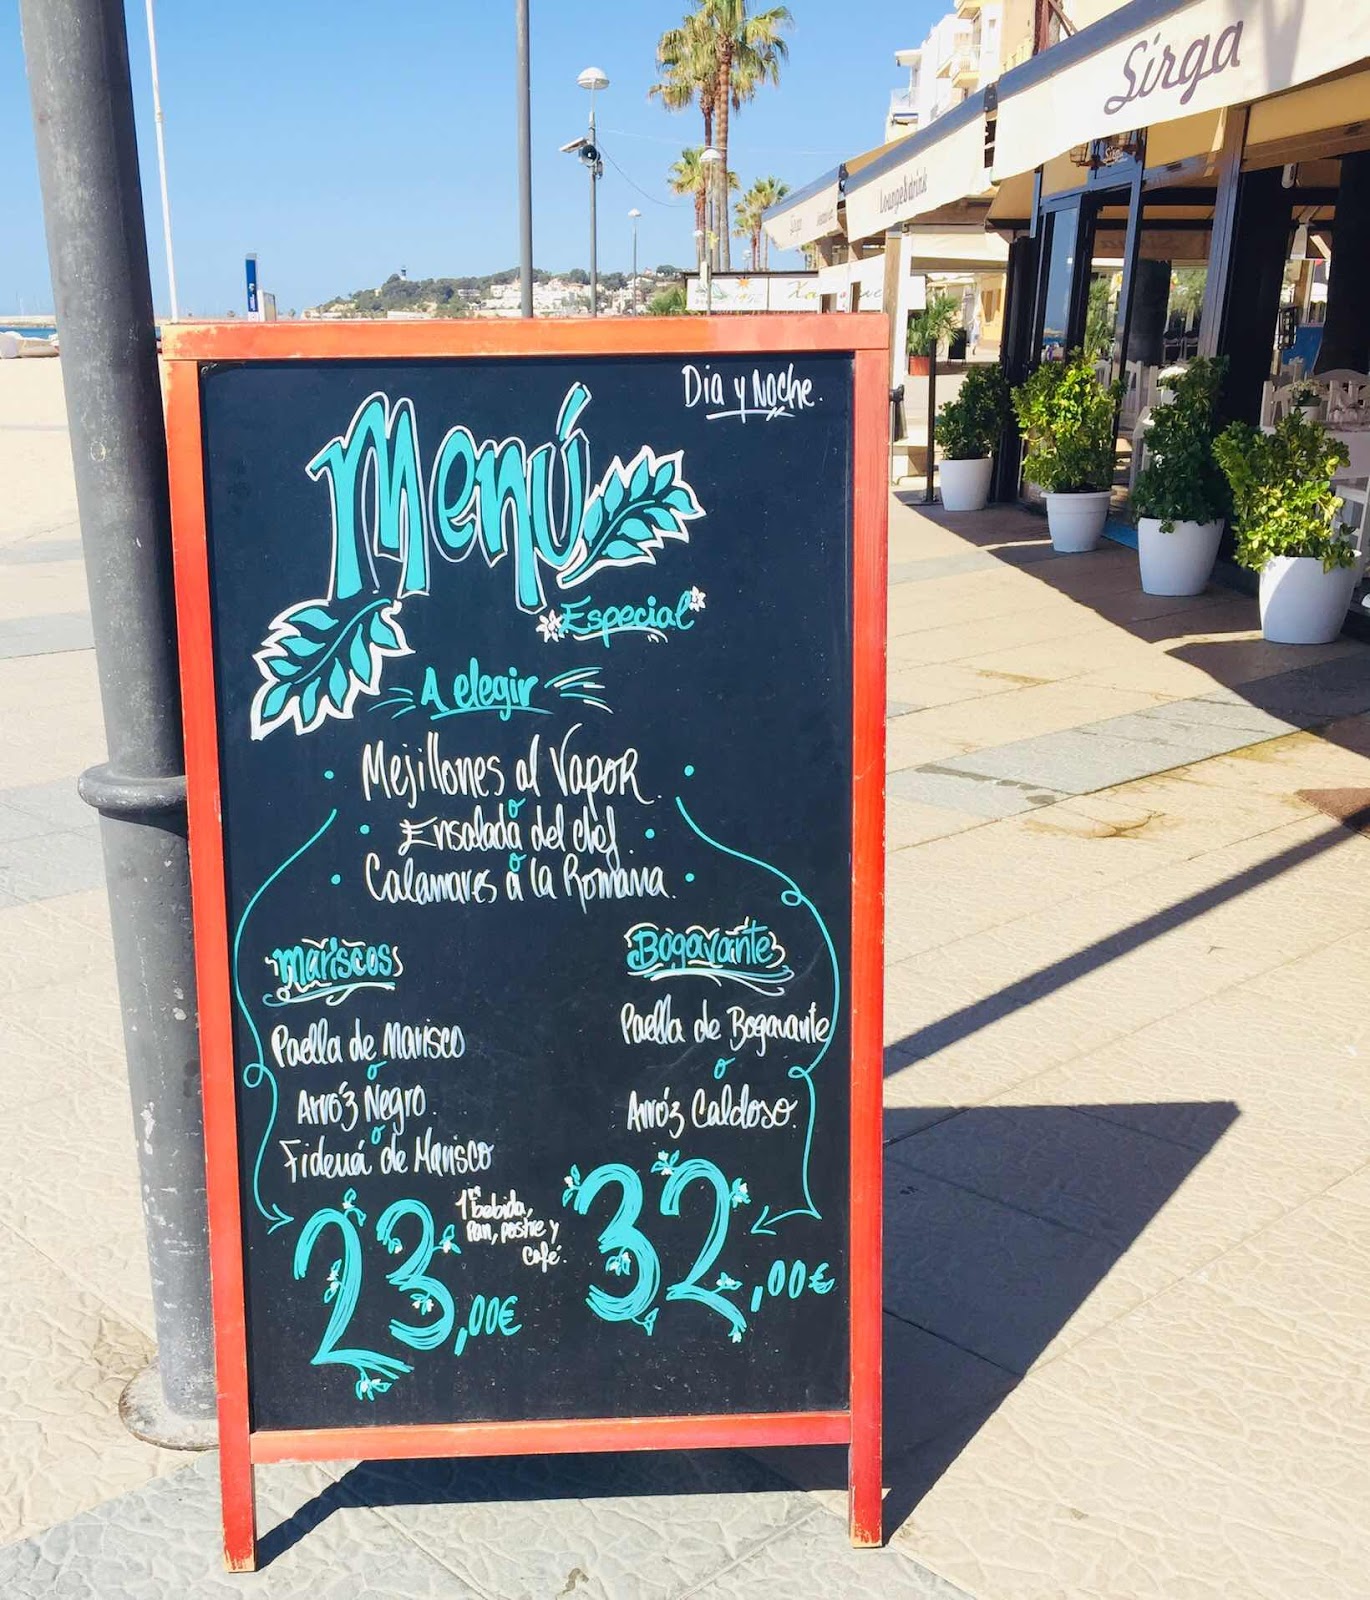 Sirga
Lounge&drink
Dia y Noche.
Menú
Especial
A elegir
Mejillones al Vapor.
o
Ensalada del chef.
o
Calamares a la Romana.
Mariscos
Paella de Marisco
o
Arróz Negro.
o
Fideuá de Marisco
23,00€
Bogavante
Paella de Bogavante
o
Arróz Caldoso.
32,00€
1ª bebida,
Pan, postre y
Café.